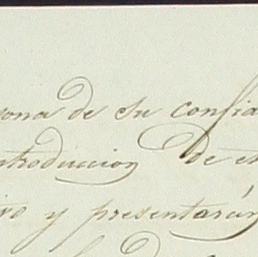 sona de su confia
ntroduccion de es
ivo y presentarán